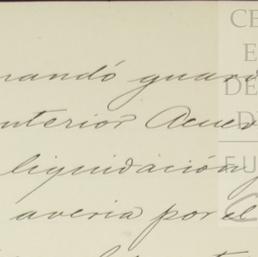 mandó guar
anterior Acuer
liquidación y
averia por el
CE
E
DE
D
FU